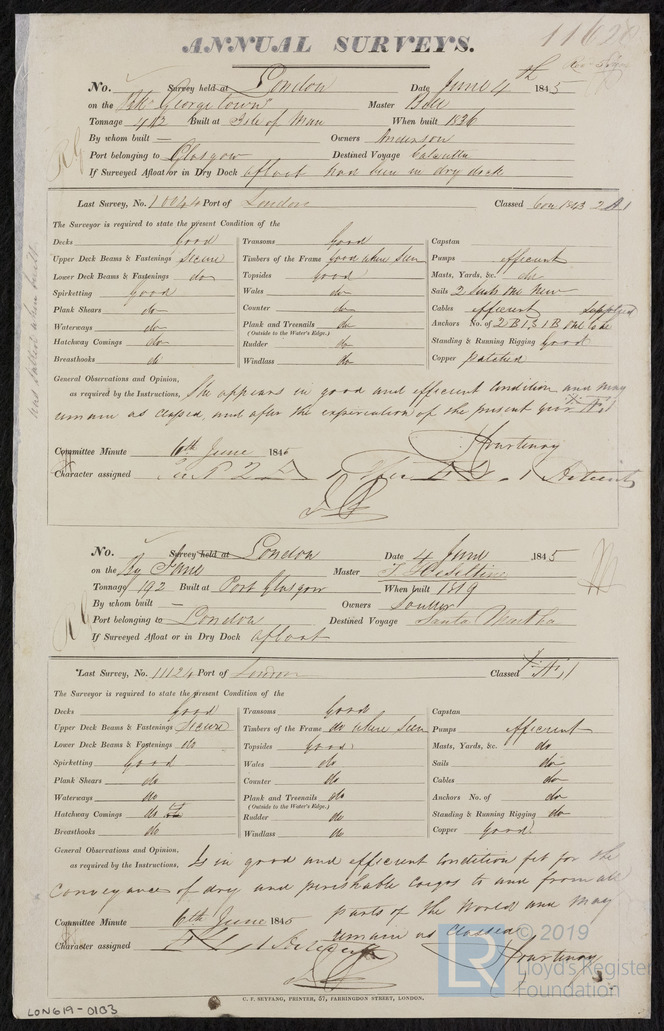 11628
ANNUAL SURVEYS.
No. Survey held at London Date June 4th 1845
on the Georgetown Master
Tonnage Built at Isle of Man When built 1836
By whom built — Owners Anderson
Port belonging to Glasgow Destined Voyage Calcutta
If Surveyed Afloat or in Dry Dock afloat had been in dry dock
Last Survey, No. Port of London Classed 1843 2 A 1
The Surveyor is required to state the present Condition of the
Decks good Transoms good Capstan
Upper Deck Beams & Fastenings Secure Timbers of the Frame good where seen Pumps efficient
Lower Deck Beams & Fastenings do Topsides good Masts, Yards, &c. do
Spirketting good Wales do Sails 2 Suits one New
Plank Shears do Counter do Cables efficient supplied
Waterways do Plank and Treenails do Anchors No. of 2 B 1 S 1 B
(Outside to the Water's Edge.)
Hatchway Comings do Rudder do Standing & Running Rigging good
Breasthooks do Windlass do Copper patched
General Observations and Opinion,
as required by the Instructions, She appears in good and efficient Condition and may
remain as classed and after the expiration of the present year
Courtenay
Committee Minute 6th June 184
Character assigned
was salted when built
No. Survey held at London Date 4 June 1845
on the Master
Tonnage 192 Built at Port Glasgow When built 1819
By whom built — Owners
Port belonging to London Destined Voyage Santa Martha
If Surveyed Afloat or in Dry Dock afloat
Last Survey, No. 11124 Port of London Classed
The Surveyor is required to state the present Condition of the
Decks good Transoms good Capstan
Upper Deck Beams & Fastenings Secure Timbers of the Frame do where seen Pumps efficient
Lower Deck Beams & Fastenings do Topsides good Masts, Yards, &c. do
Spirketting good Wales do Sails do
Plank Shears do Counter do Cables do
Waterways do Plank and Treenails do Anchors No. of do
(Outside to the Water's Edge.)
Hatchway Comings do Rudder do Standing & Running Rigging do
Breasthooks do Windlass do Copper good
General Observations and Opinion,
as required by the Instructions, Is in good and efficient condition fit for the
conveyance of dry and perishable cargos to and from all
parts of the World and may
Committee Minute 6th June 1845
remain as classed
Character assigned
Courtenay
C. F. SEYFANG, PRINTER, 57, FARRINGDON STREET, LONDON.
LON619-0133
LR
© 2019
Lloyd's Register
Foundation